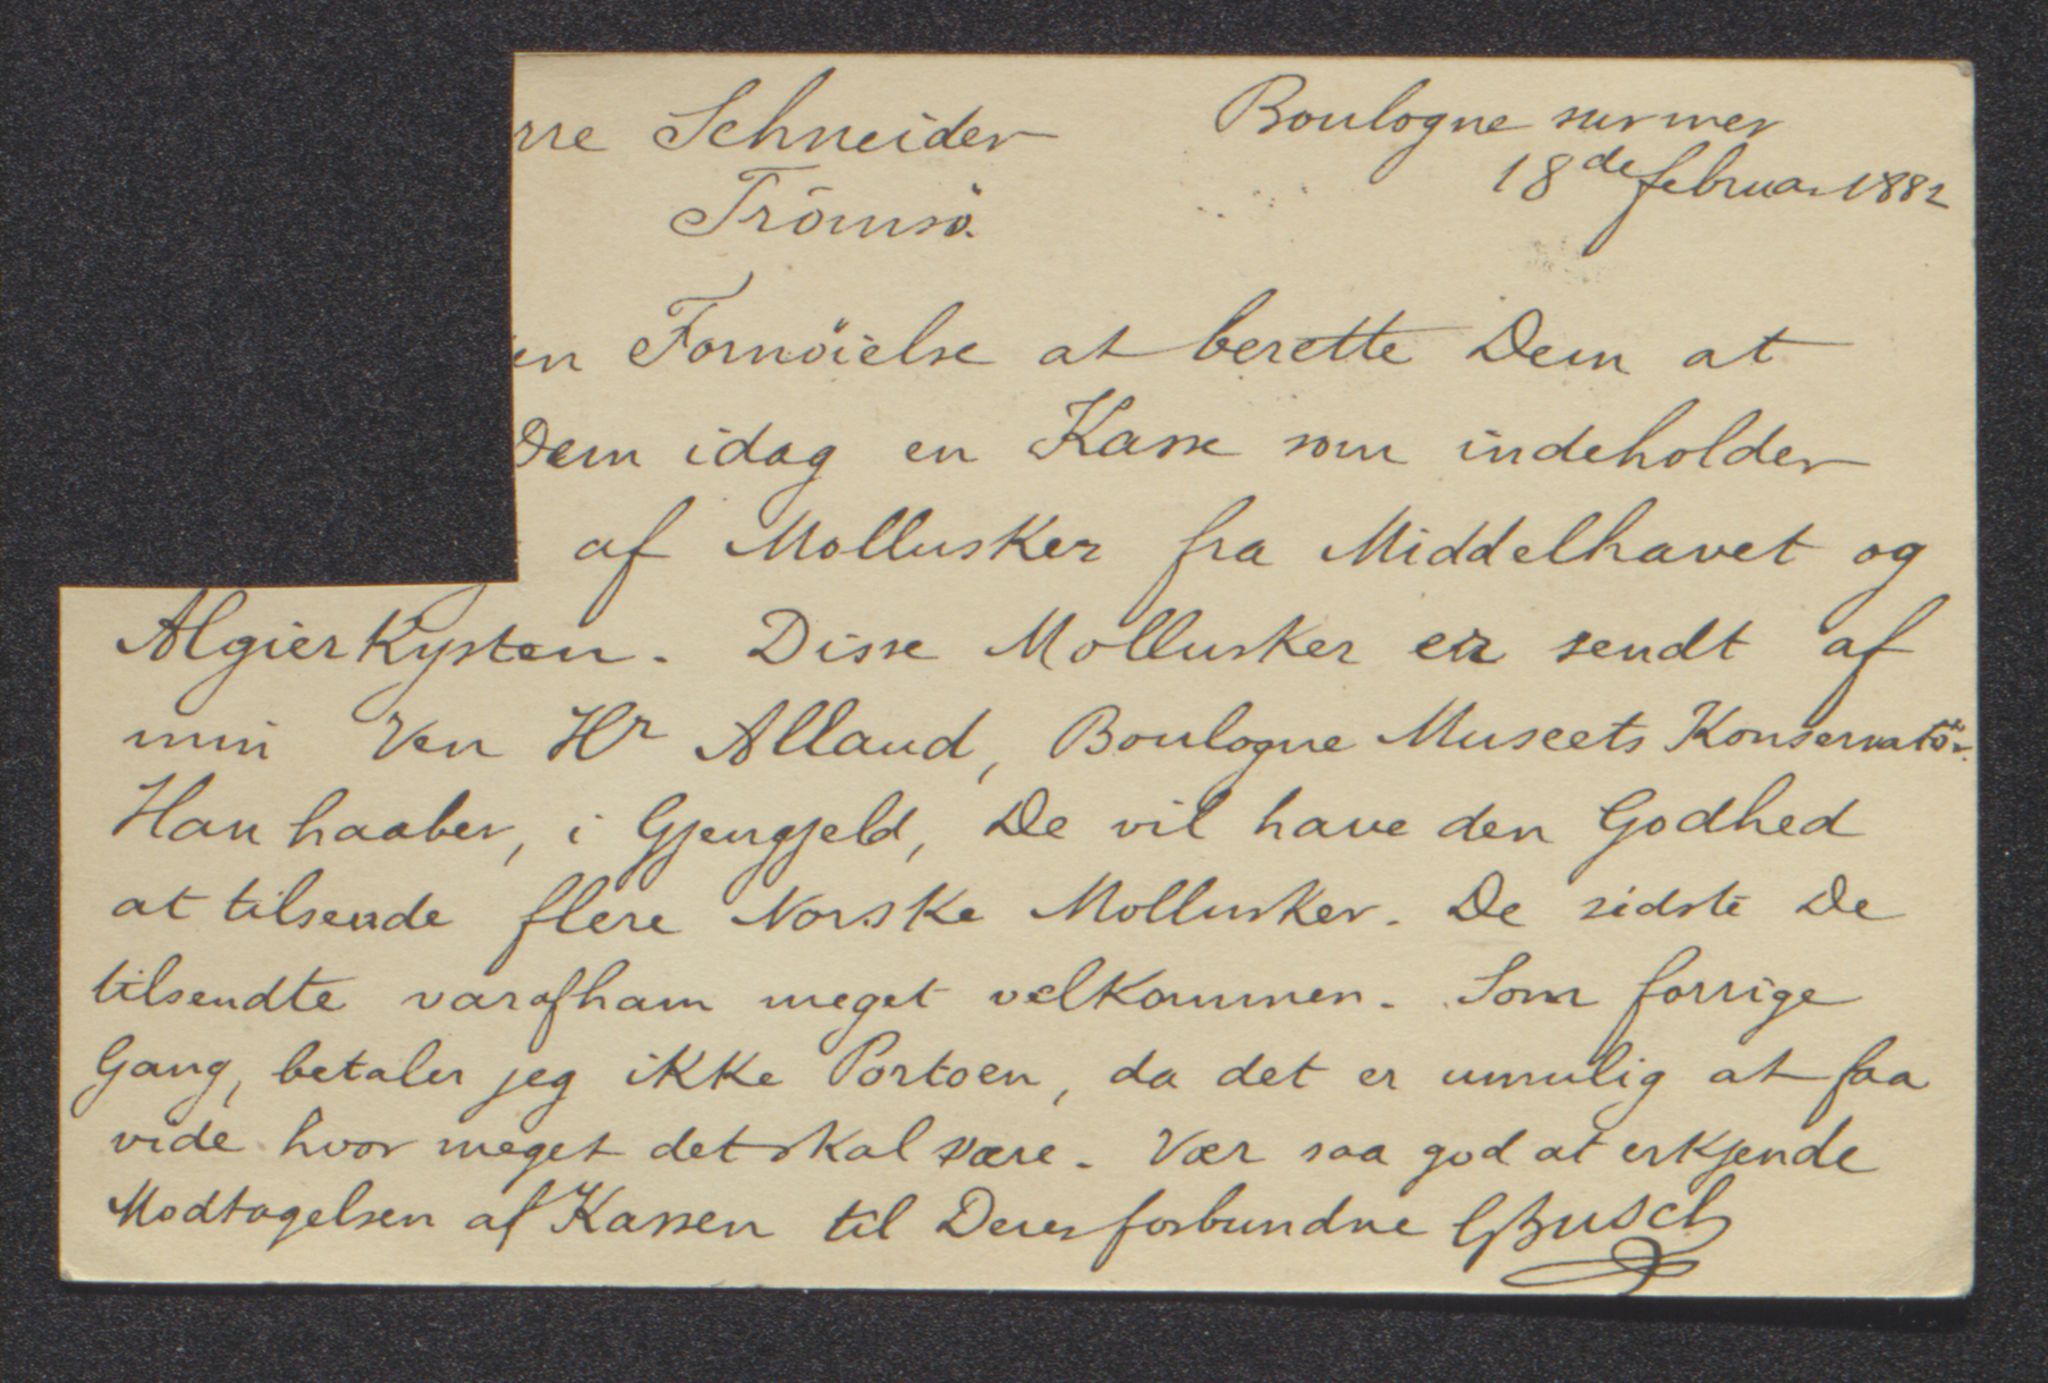 rre Schneider
Tromsö.
Boulogne sur mer
18de februar 1882
en Fornöielse at berette Dem at
Dem idag en Kasse som indeholder
af Mollusker fra Middelhavet og
Algierkysten. Disse Mollusker er sendt af
min Ven Hr Allaud, Boulogne Museets Konservatör.
Han haaber, i Gjengjeld, De vil have den Godhed
at tilsende flere Norske Mollusker. De sidste De
tilsendte var af ham meget velkommen. Som forrige
Gang, betaler jeg ikke Portoen, da det er umulig at faa
vide hvor meget det skal være. Vær saa god at erkjende
Modtagelsen af Kassen til Deres forbundne GBusch